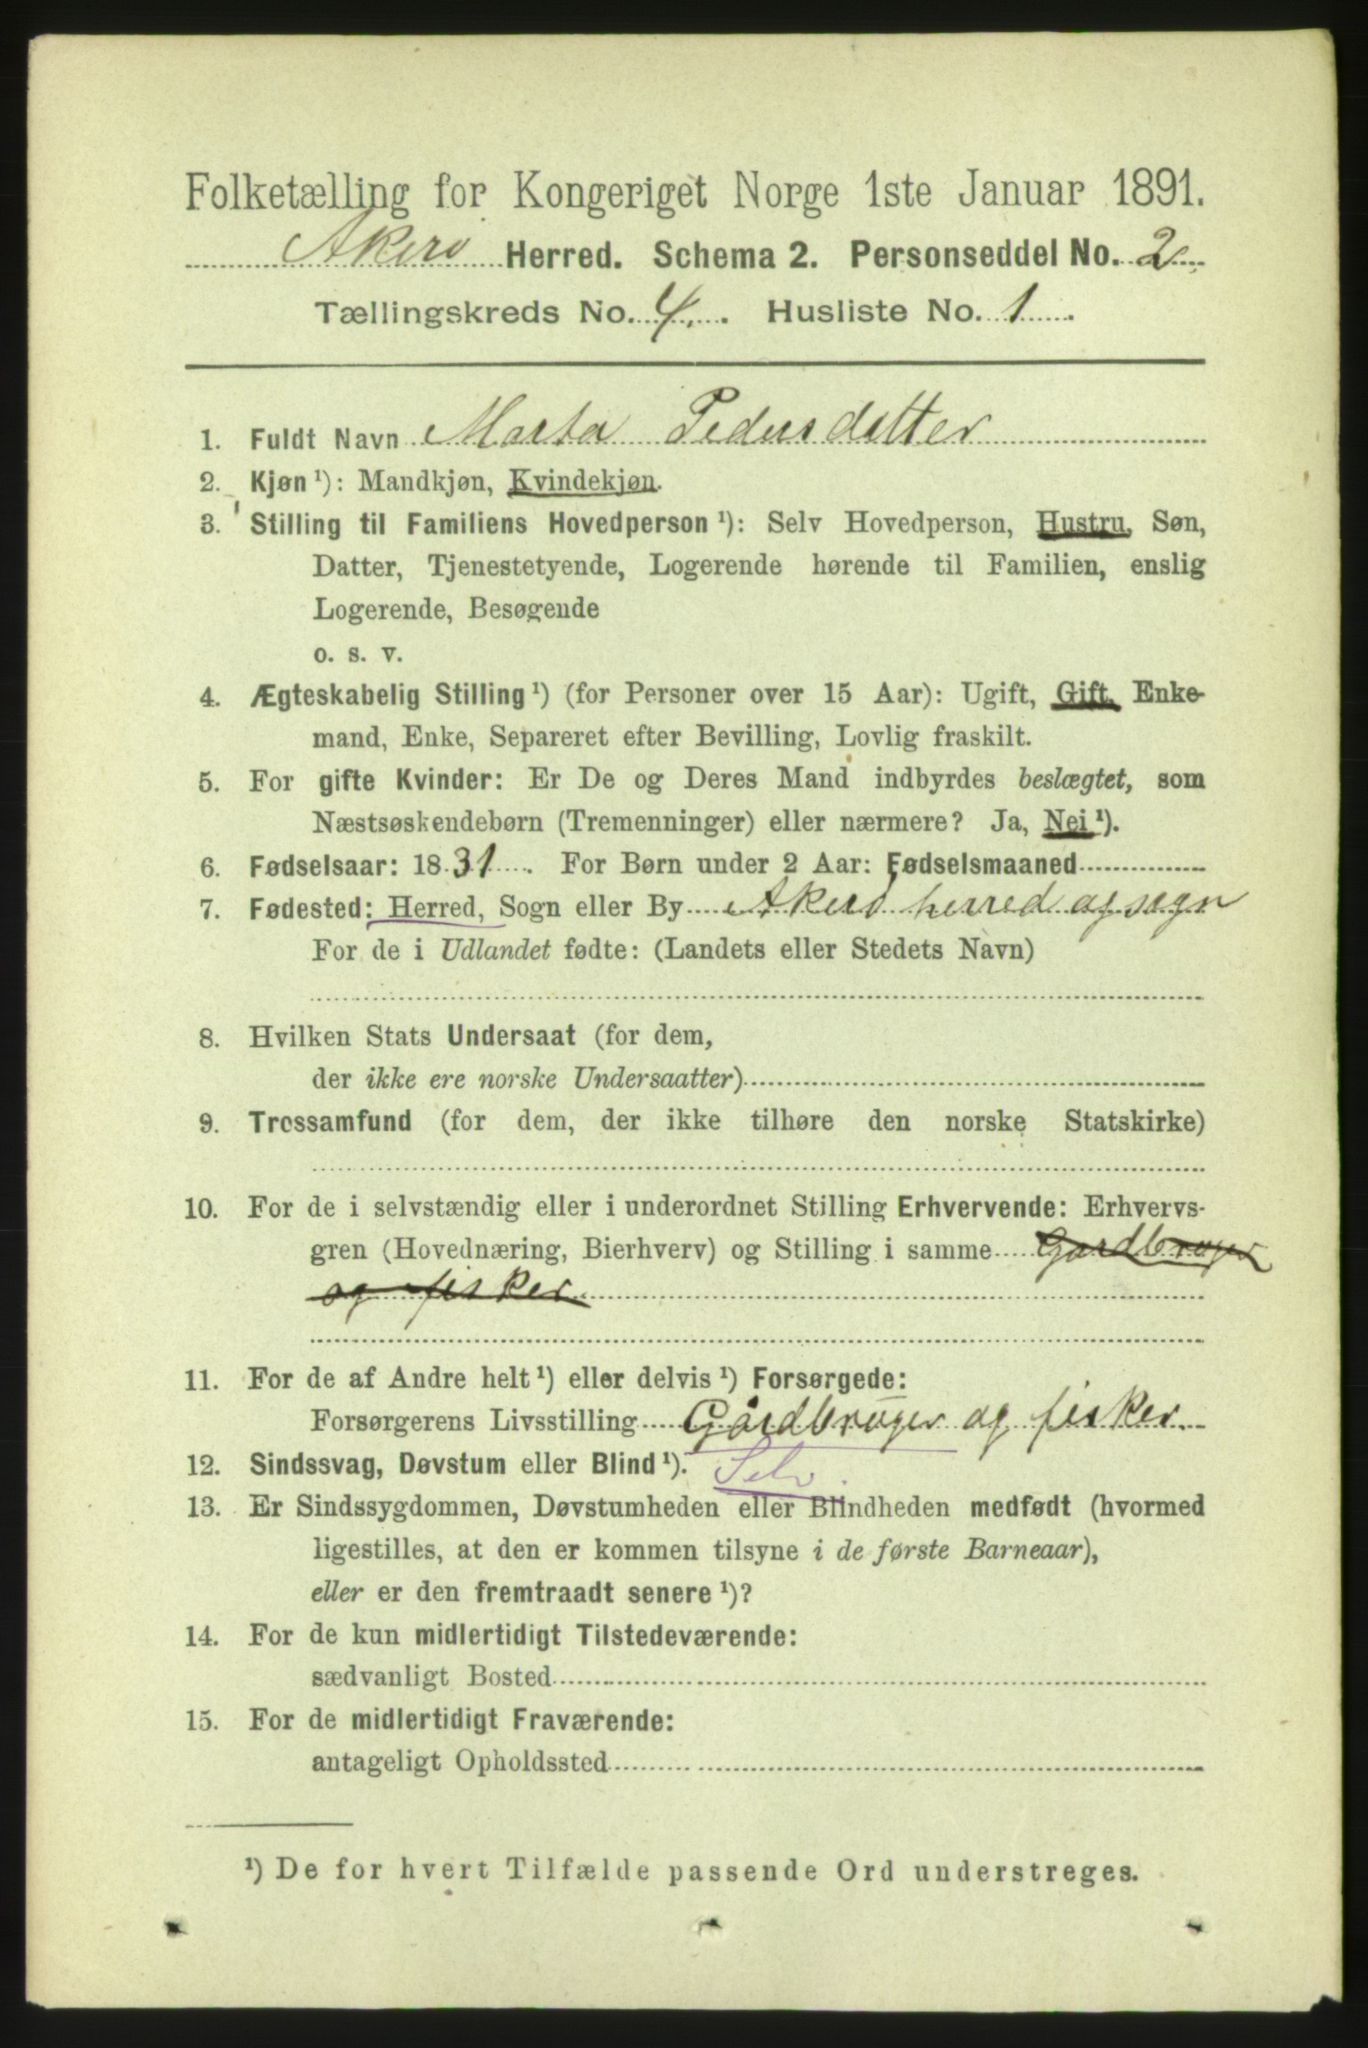 Folketælling for Kongeriget Norge 1ste Januar 1891.
Akerø Herred. Schema 2. Personseddel No. 2.
Tællingskreds No. 4. Husliste No. 1.
1. Fuldt Navn Marta Pedersdatter
2. Kjøn ¹): Mandkjøn, Kvindekjøn.
3. Stilling til Familiens Hovedperson ¹): Selv Hovedperson, Hustru, Søn,
Datter, Tjenestetyende, Logerende hørende til Familien, enslig
Logerende, Besøgende
o. s. v.
4. Ægteskabelig Stilling ¹) (for Personer over 15 Aar): Ugift, Gift, Enke-
mand, Enke, Separeret efter Bevilling, Lovlig fraskilt.
5. For gifte Kvinder: Er De og Deres Mand indbyrdes beslægtet, som
Næstsøskendebørn (Tremenninger) eller nærmere? Ja, Nei ¹).
6. Fødselsaar: 1831. For Børn under 2 Aar: Fødselsmaaned
7. Fødested: Herred, Sogn eller By Akerø herred og sogn
For de i Udlandet fødte: (Landets eller Stedets Navn)
8. Hvilken Stats Undersaat (for dem,
der ikke ere norske Undersaatter)
9. Trossamfund (for dem, der ikke tilhøre den norske Statskirke)
10. For de i selvstændig eller i underordnet Stilling Erhvervende: Erhvervs-
gren (Hovednæring, Bierhverv) og Stilling i samme Gardbruger
og fisker
11. For de af Andre helt ¹) eller delvis ¹) Forsørgede:
Forsørgerens Livsstilling Gårdbruger og fisker.
12. Sindssvag, Døvstum eller Blind ¹). Selv.
13. Er Sindssygdommen, Døvstumheden eller Blindheden medfødt (hvormed
ligestilles, at den er kommen tilsyne i de første Barneaar),
eller er den fremtraadt senere ¹)?
14. For de kun midlertidigt Tilstedeværende:
sædvanligt Bosted
15. For de midlertidigt Fraværende:
antageligt Opholdssted
¹) De for hvert Tilfælde passende Ord understreges.